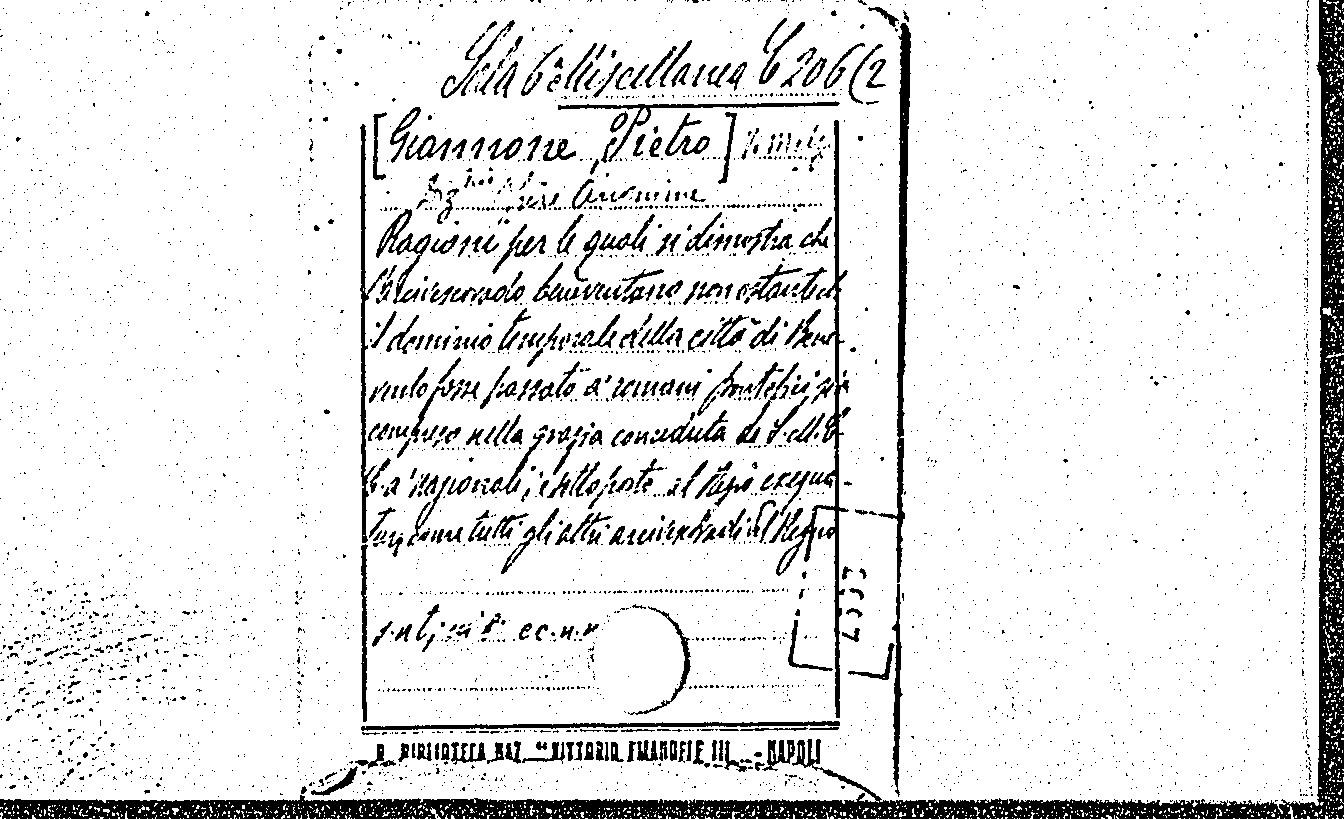 Sala 6ª Miscellanea C 206(2
[Giannone, Pietro]
Anonime
Ragioni per le quali si dimostra che
l'arcivescovado beneventano non ostante che
il dominio temporale della città di Bene-
vento fosse passato a' romani pontefici sia
compreso nella grazia conceduta da S. M. C.
C. a' nazionali, e sottoposto al Regio exequa-
tur, come tutti gli altri arcivescovadi del Regno
s.n.t.,
R. BIBLIOTECA NAZ. "VITTORIO EMANUELE III" - NAPOLI